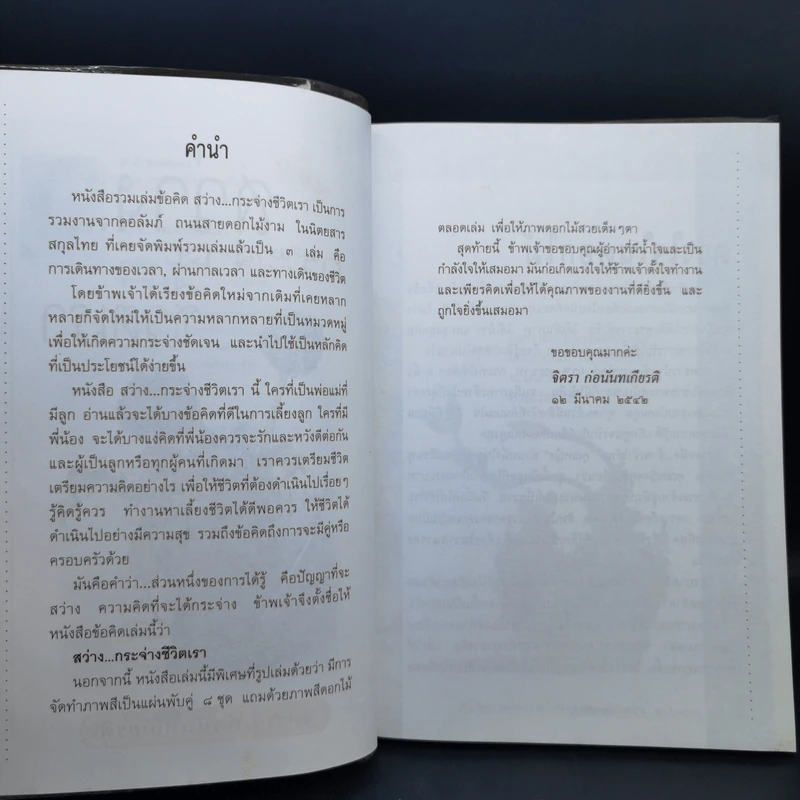 คำนำ
หนังสือรวมเล่มข้อคิด สว่าง...กระจ่างชีวิตเรา เป็นการ
รวมงานจากคอลัมภ์ ถนนสายดอกไม้งาม ในนิตยสาร
สกุลไทย ที่เคยจัดพิมพ์รวมเล่มแล้วเป็น ๓ เล่ม คือ
การเดินทางของเวลา, ผ่านกาลเวลา และทางเดินของชีวิต
โดยข้าพเจ้าได้เรียงข้อคิดใหม่จากเดิมที่เคยหลาก
หลายก็จัดใหม่ให้เป็นความหลากหลายที่เป็นหมวดหมู่
เพื่อให้เกิดความกระจ่างชัดเจน และนำไปใช้เป็นหลักคิด
ที่เป็นประโยชน์ได้ง่ายขึ้น
หนังสือ สว่าง...กระจ่างชีวิตเรา นี้ ใครที่เป็นพ่อแม่ที่
มีลูก อ่านแล้วจะได้บางข้อคิดที่ดีในการเลี้ยงลูก ใครที่มี
พี่น้อง จะได้บางแง่คิดที่พี่น้องควรจะรักและหวังดีต่อกัน
และผู้เป็นลูกหรือทุกผู้คนที่เกิดมา เราควรเตรียมชีวิต
เตรียมความคิดอย่างไร เพื่อให้ชีวิตที่ต้องดำเนินไปเรื่อยๆ
รู้คิดรู้ควร ทำงานหาเลี้ยงชีวิตได้ดีพอควร ให้ชีวิตได้
ดำเนินไปอย่างมีความสุข รวมถึงข้อคิดถึงการจะมีคู่หรือ
ครอบครัวด้วย
มันคือคำว่า...ส่วนหนึ่งของการได้รู้ คือปัญญาที่จะ
สว่าง ความคิดที่จะได้กระจ่าง ข้าพเจ้าจึงตั้งชื่อให้
หนังสือข้อคิดเล่มนี้ว่า
สว่าง...กระจ่างชีวิตเรา
นอกจากนี้ หนังสือเล่มนี้มีพิเศษที่รูปเล่มด้วยว่า มีการ
จัดทำภาพสีเป็นแผ่นพับคู่ ๘ ชุด แถมด้วยภาพสีดอกไม้
ตลอดเล่ม เพื่อให้ภาพดอกไม้สวยเต็มๆตา
สุดท้ายนี้ ข้าพเจ้าขอขอบคุณผู้อ่านที่มีน้ำใจและเป็น
กำลังใจให้เสมอมา มันก่อเกิดแรงใจให้ข้าพเจ้าตั้งใจทำงาน
และเพียรคิดเพื่อให้ได้คุณภาพของงานที่ดียิ่งขึ้น และ
ถูกใจยิ่งขึ้นเสมอมา
ขอขอบคุณมากค่ะ
จิตรา ก่อนันทเกียรติ
๑๒ มีนาคม ๒๕๔๒